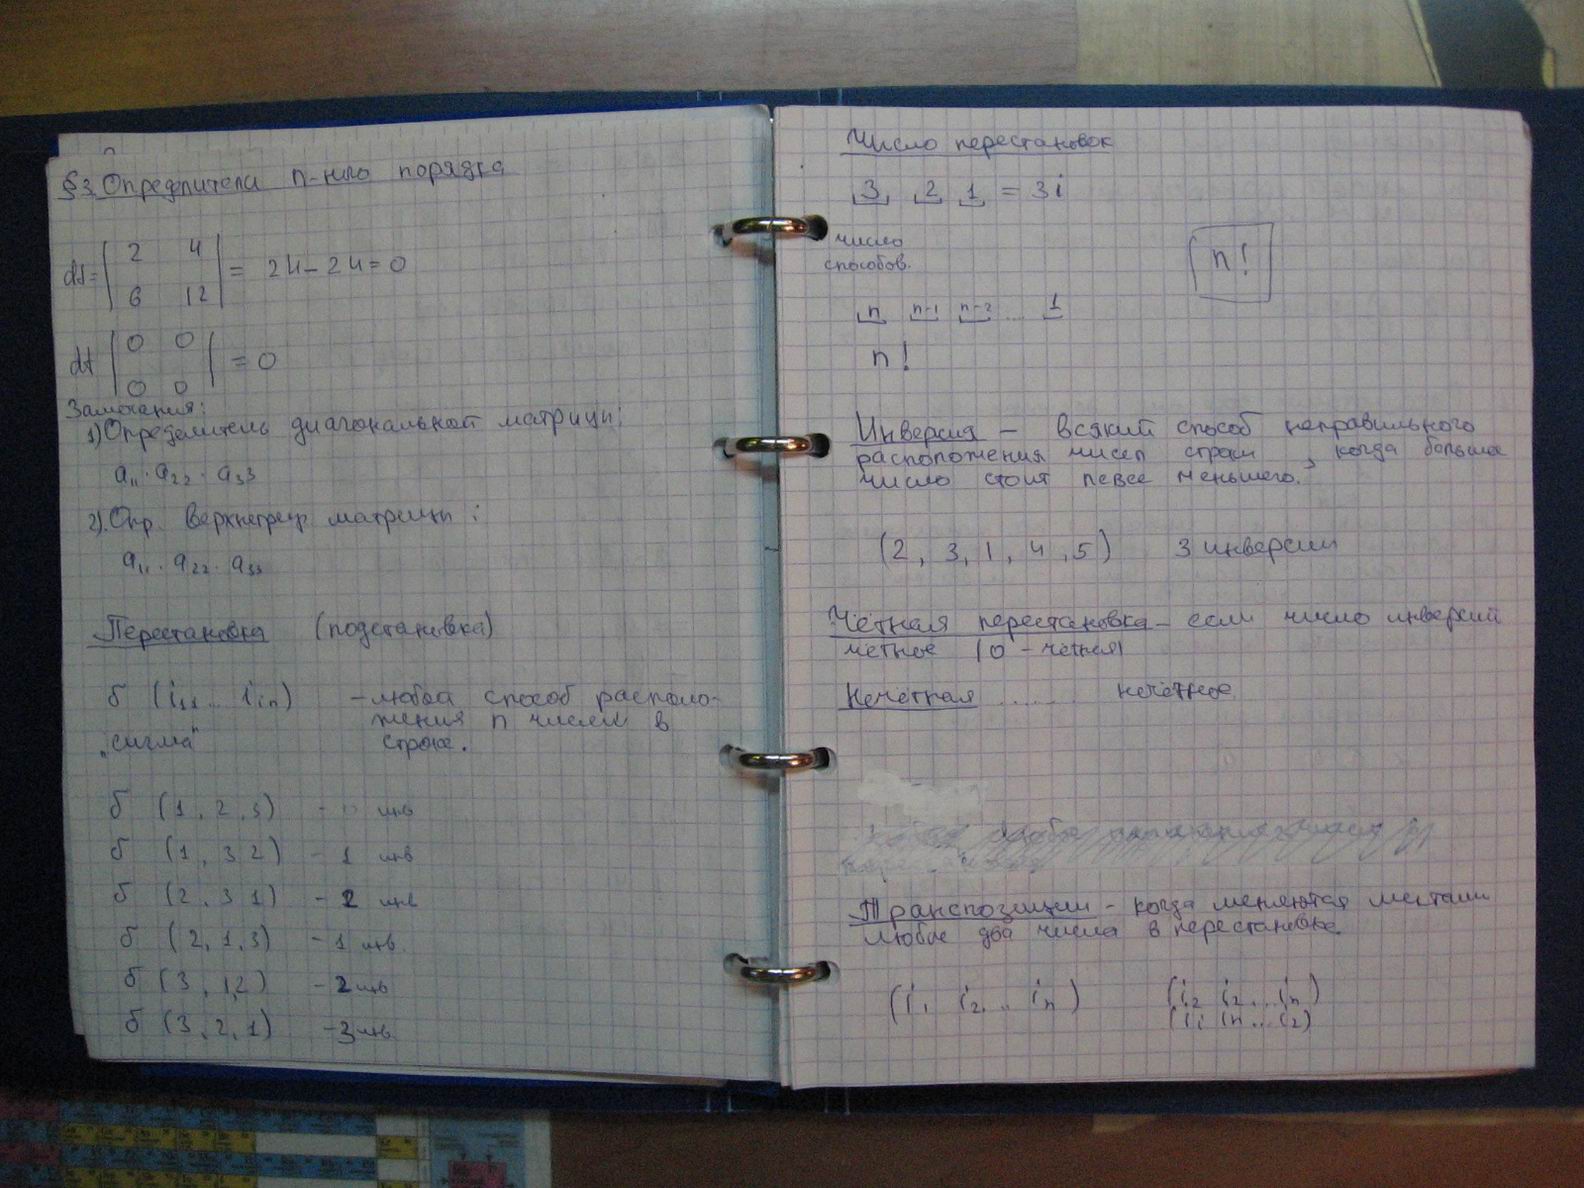 §3. Определители n-ного порядка
dt = | 2 4 |
| 6 12 | = 24 - 24 = 0
dt | 0 0 |
| 0 0 | = 0
Замечания:
1) Определитель диагональной матрицы:
a₁₁ · a₂₂ · a₃₃
2) Опр. Верхнетреуг матрицы :
a₁₁ · a₂₂ · a₃₃
Перестановка (подстановка)
б (i₁₁ ... i_in) - любой способ располо-
жения n чисел в
„сигма" строке.
б (1, 2, 3) - 0 инв
б (1, 3 2) - 1 инв
б (2, 3 1) - 2 инв
б (2, 1, 3) - 1 инв.
б (3, 1, 2) - 2 инв
б (3, 2, 1) - 3 инв.
Число перестановок
3, 2 1 = 3i
число
способов.
n!
n n-1 n-2 ... 1
n!
Инверсия - всякий способ неправильного
расположения чисел строки, когда большее
число стоит левее меньшего.
(2, 3, 1, 4, 5) 3 инверсии
Чётная перестановка - если число инверсий
четное (0 - четная)
Нечётная ...... нечётное
Транспозиции - когда меняются местами
любые два числа в перестановке.
(i₁ i₂ ... iₙ) (i₂ i₂ ... iₙ)
(i₁ iₙ ... i₂)